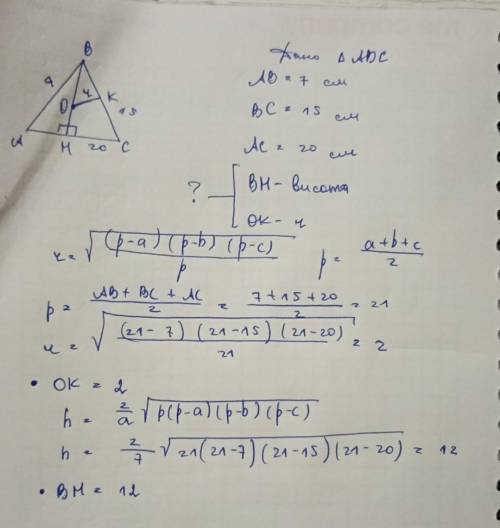 Дано △ ABC
AB = 7 см
BC = 15 см
AC = 20 см
? BH - висота
OK - r
B
7
r
O
K
15
A
H
20
C
r = √((p-a)(p-b)(p-c)/p) p = (a+b+c)/2
p = (AB + BC + AC)/2 = (7+15+20)/2 = 21
r = √((21-7)(21-15)(21-20)/21) = 2
• OK = 2
h = 2/a √(p(p-a)(p-b)(p-c))
h = 2/7 √(21(21-7)(21-15)(21-20)) = 12
• BH = 12